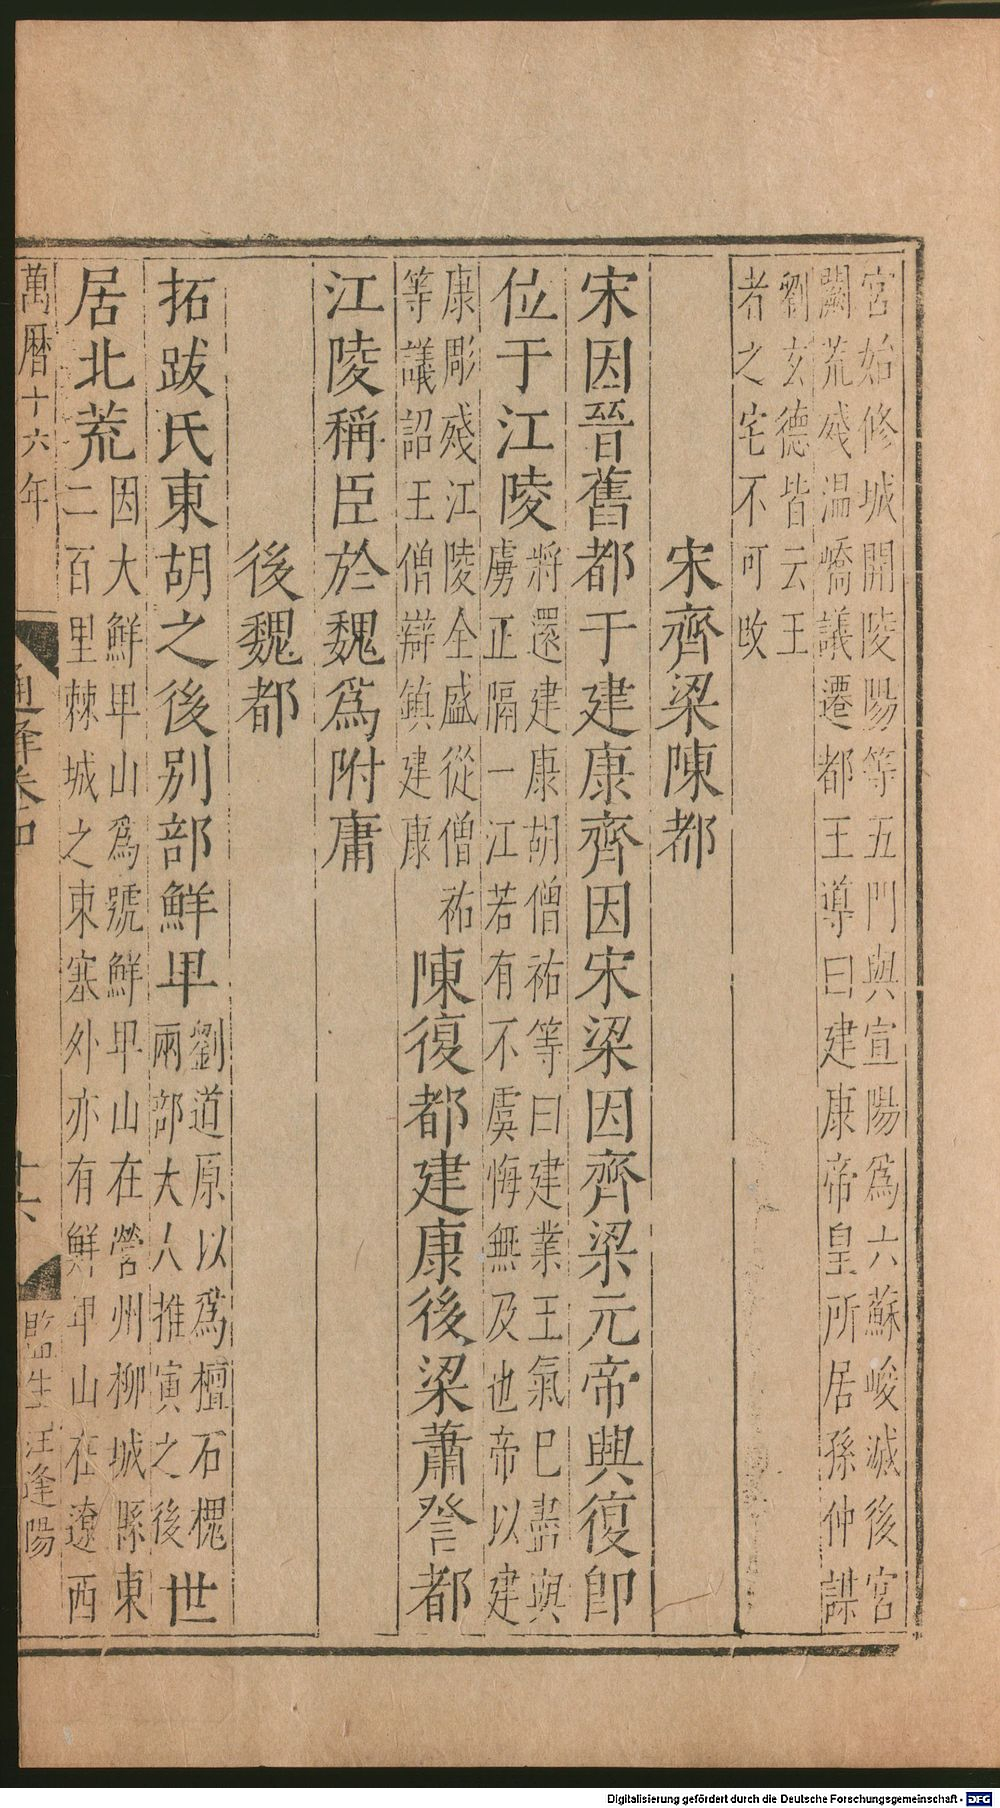 宮始修城開陵陽等五門與宣陽爲六蘇峻滅後宮
闕荒殘温嶠議遷都王導曰建康帝皇所居孫仲謀
劉玄德皆云王
者之宅不可改
宋齊梁陳都
宋因晉舊都于建康齊因宋梁因齊梁元帝興復卽
位于江陵
將還建康胡僧祐等曰建業王氣已盡與
虜正隔一江若有不虞悔無及也帝以建
康彫殘江陵全盛從僧祐
等議詔王僧辯鎮建康
陳復都建康後梁蕭詧都
江陵稱臣於魏爲附庸
後魏都
拓跋氏東胡之後別部鮮卑
劉道原以爲檀石槐
兩部大人推寅之後
世
居北荒
因大鮮卑山爲號鮮卑山在營州柳城縣東
二百里棘城之東塞外亦有鮮卑山在遼西
萬曆十六年
通釋卷四
十六
監生汪逢陽
Digitalisierung gefördert durch die Deutsche Forschungsgemeinschaft - DFG